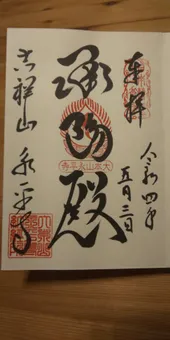 奉拝
令和四年
五月三日
承陽殿
大本山永平寺
吉祥山 永平寺